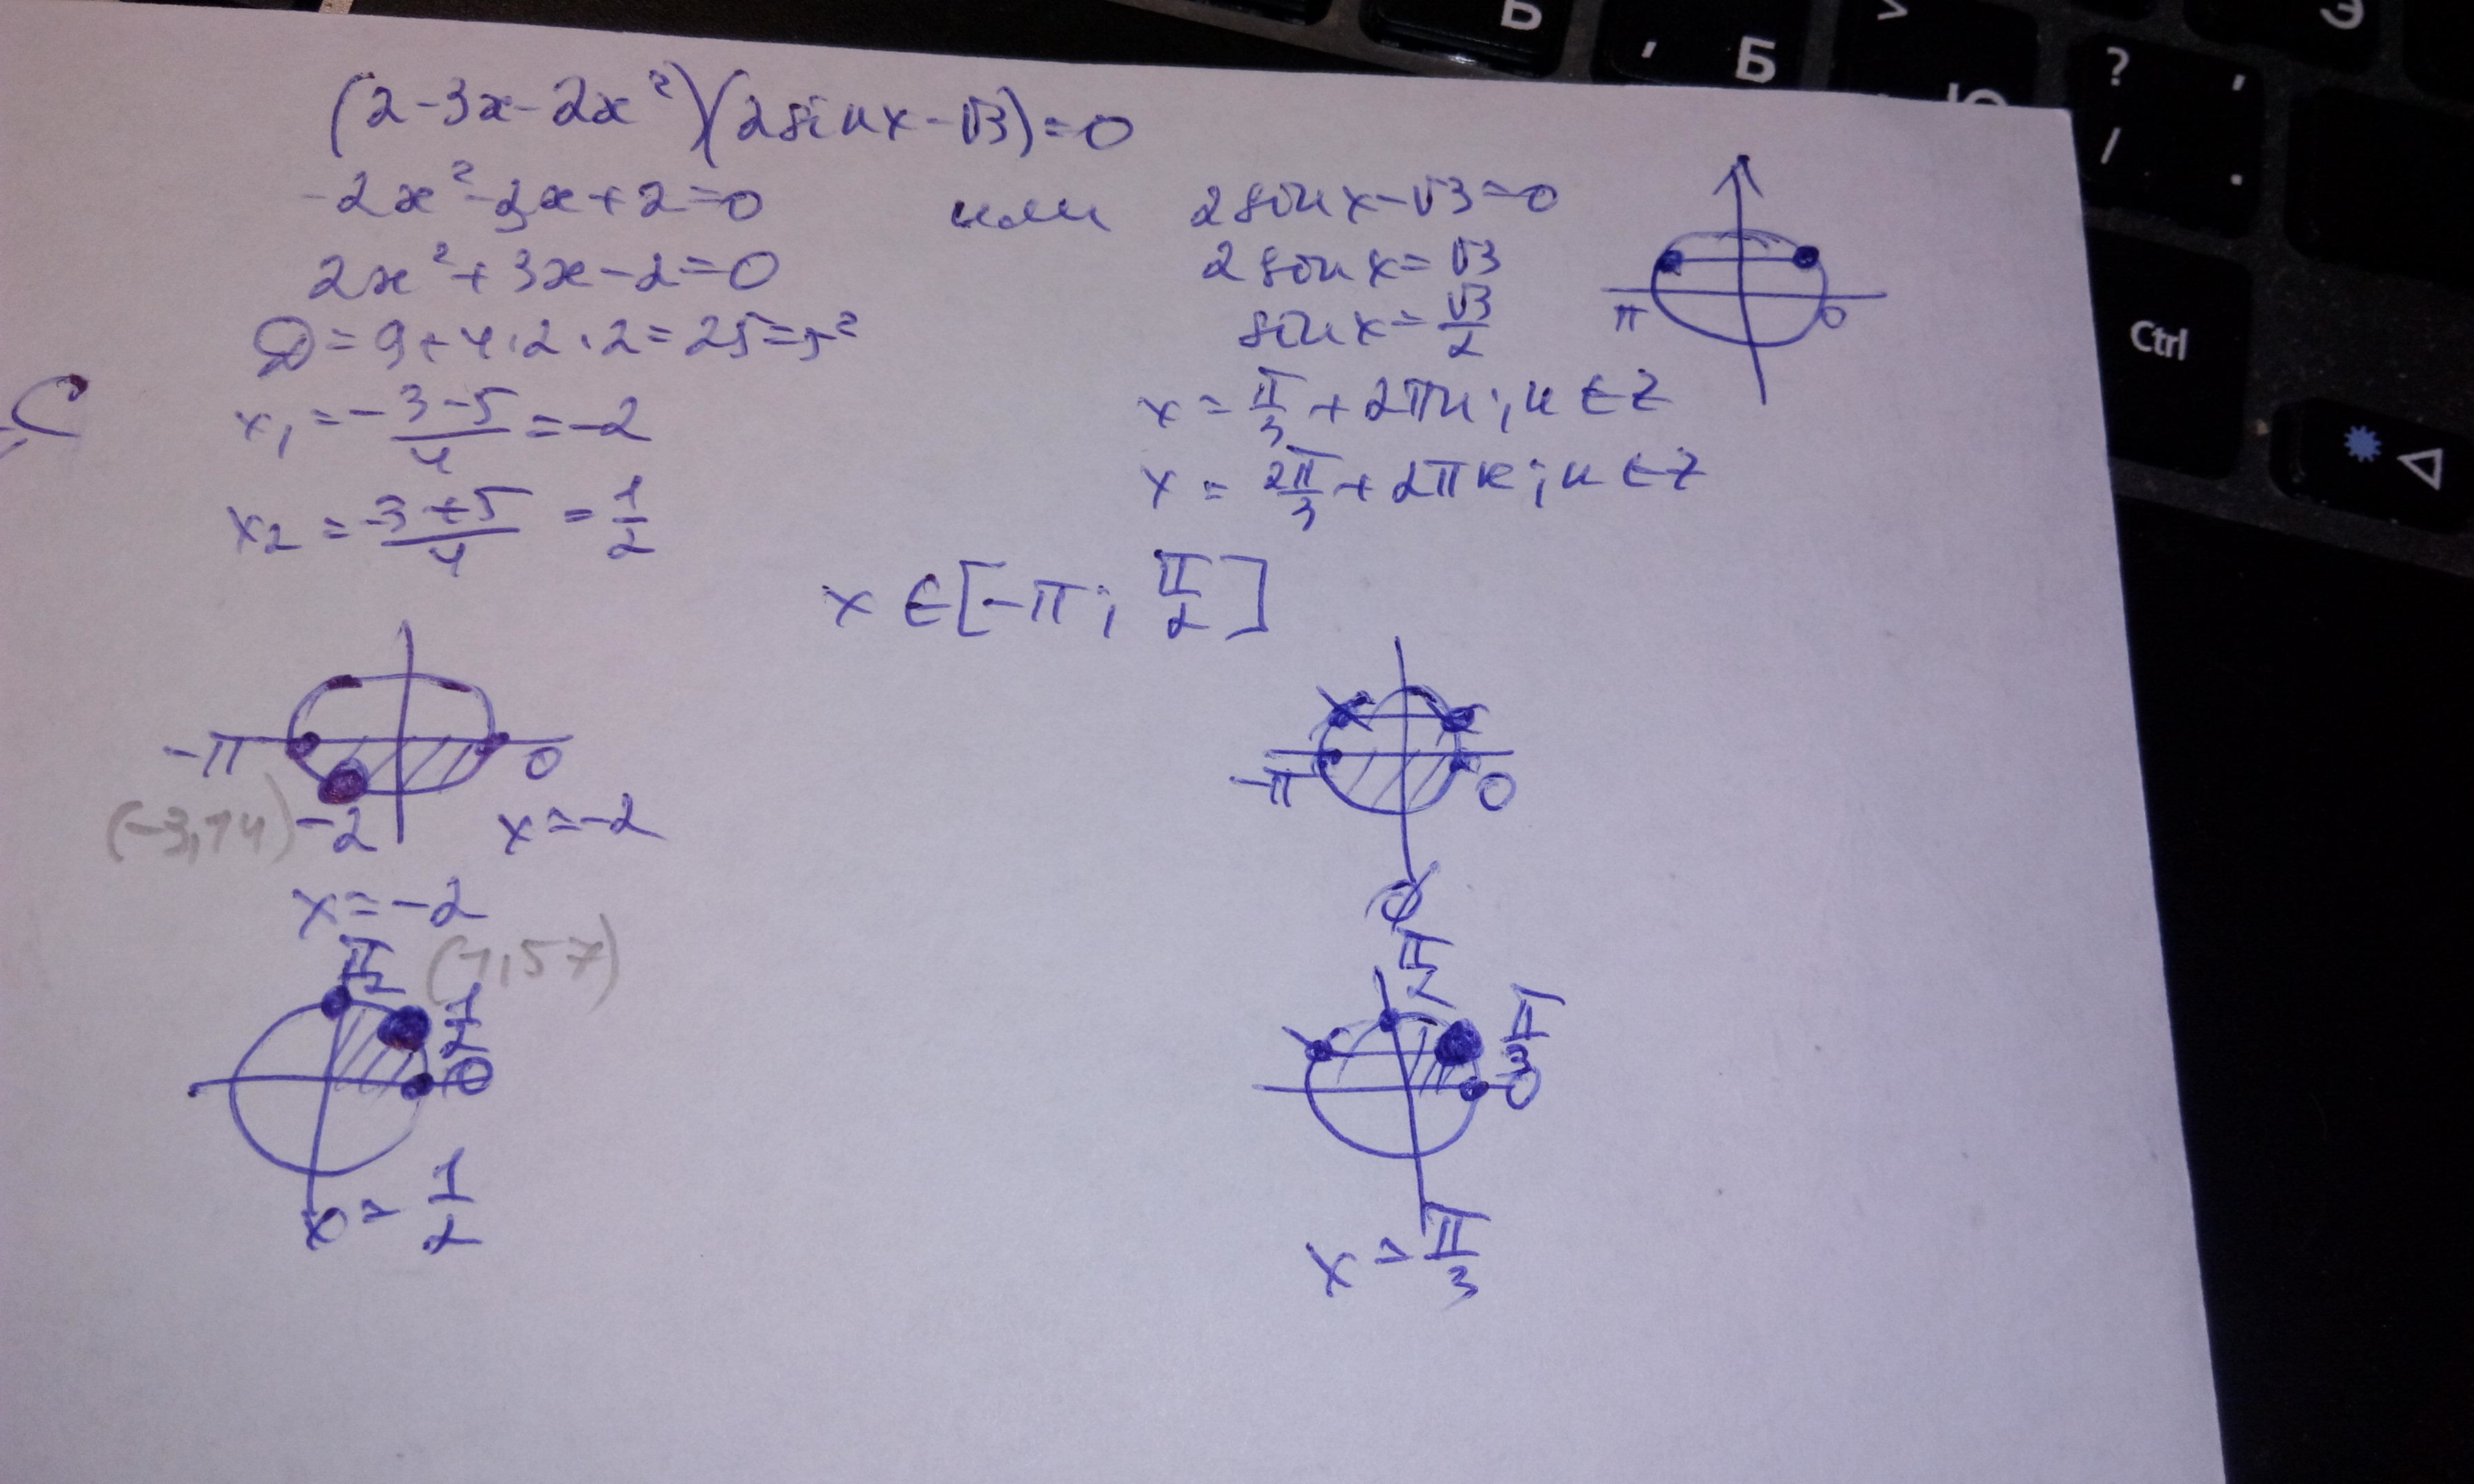 Ь
, Б
>
Ю
? ,
/ .
Э
Ctrl
(2-3x-2x²)(2sinx-√3)=0
-2x²-3x+2=0 или 2sinx-√3=0
2x²+3x-2=0 2sinx=√3
D=9+4·2·2=25=5² sinx=√3/2
π 0
C
x₁=-3-5/4=-2 x=π/3+2πn; n∈Z
x₂=-3+5/4=1/2 x=2π/3+2πк; к∈Z
x∈[-π; π/2]
-π 0 -π 0
(-3,14) -2 x=-2
x=-2 ∅
π/2 (1,57) π/2
1/2 π/3
0 0
x=1/2 x=π/3